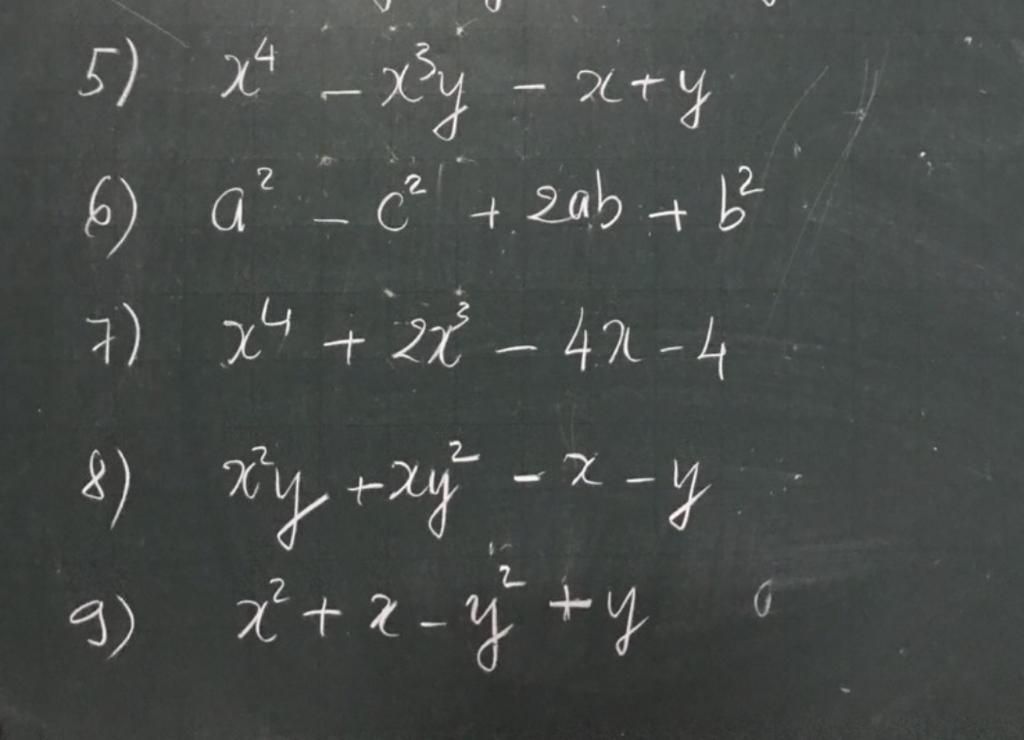 5) x⁴ - x³y - x + y
6) a² - c² + 2ab + b²
7) x⁴ + 2x³ - 4x - 4
8) x²y + xy² - x - y
9) x² + x - y² + y